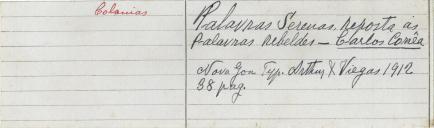 Colonias
Palavras Serenas. Resposta ás
Palavras Rebeldes – Carlos Corrêa
Nova Goa Typ. Arthur & Viegas 1912
38 pag.